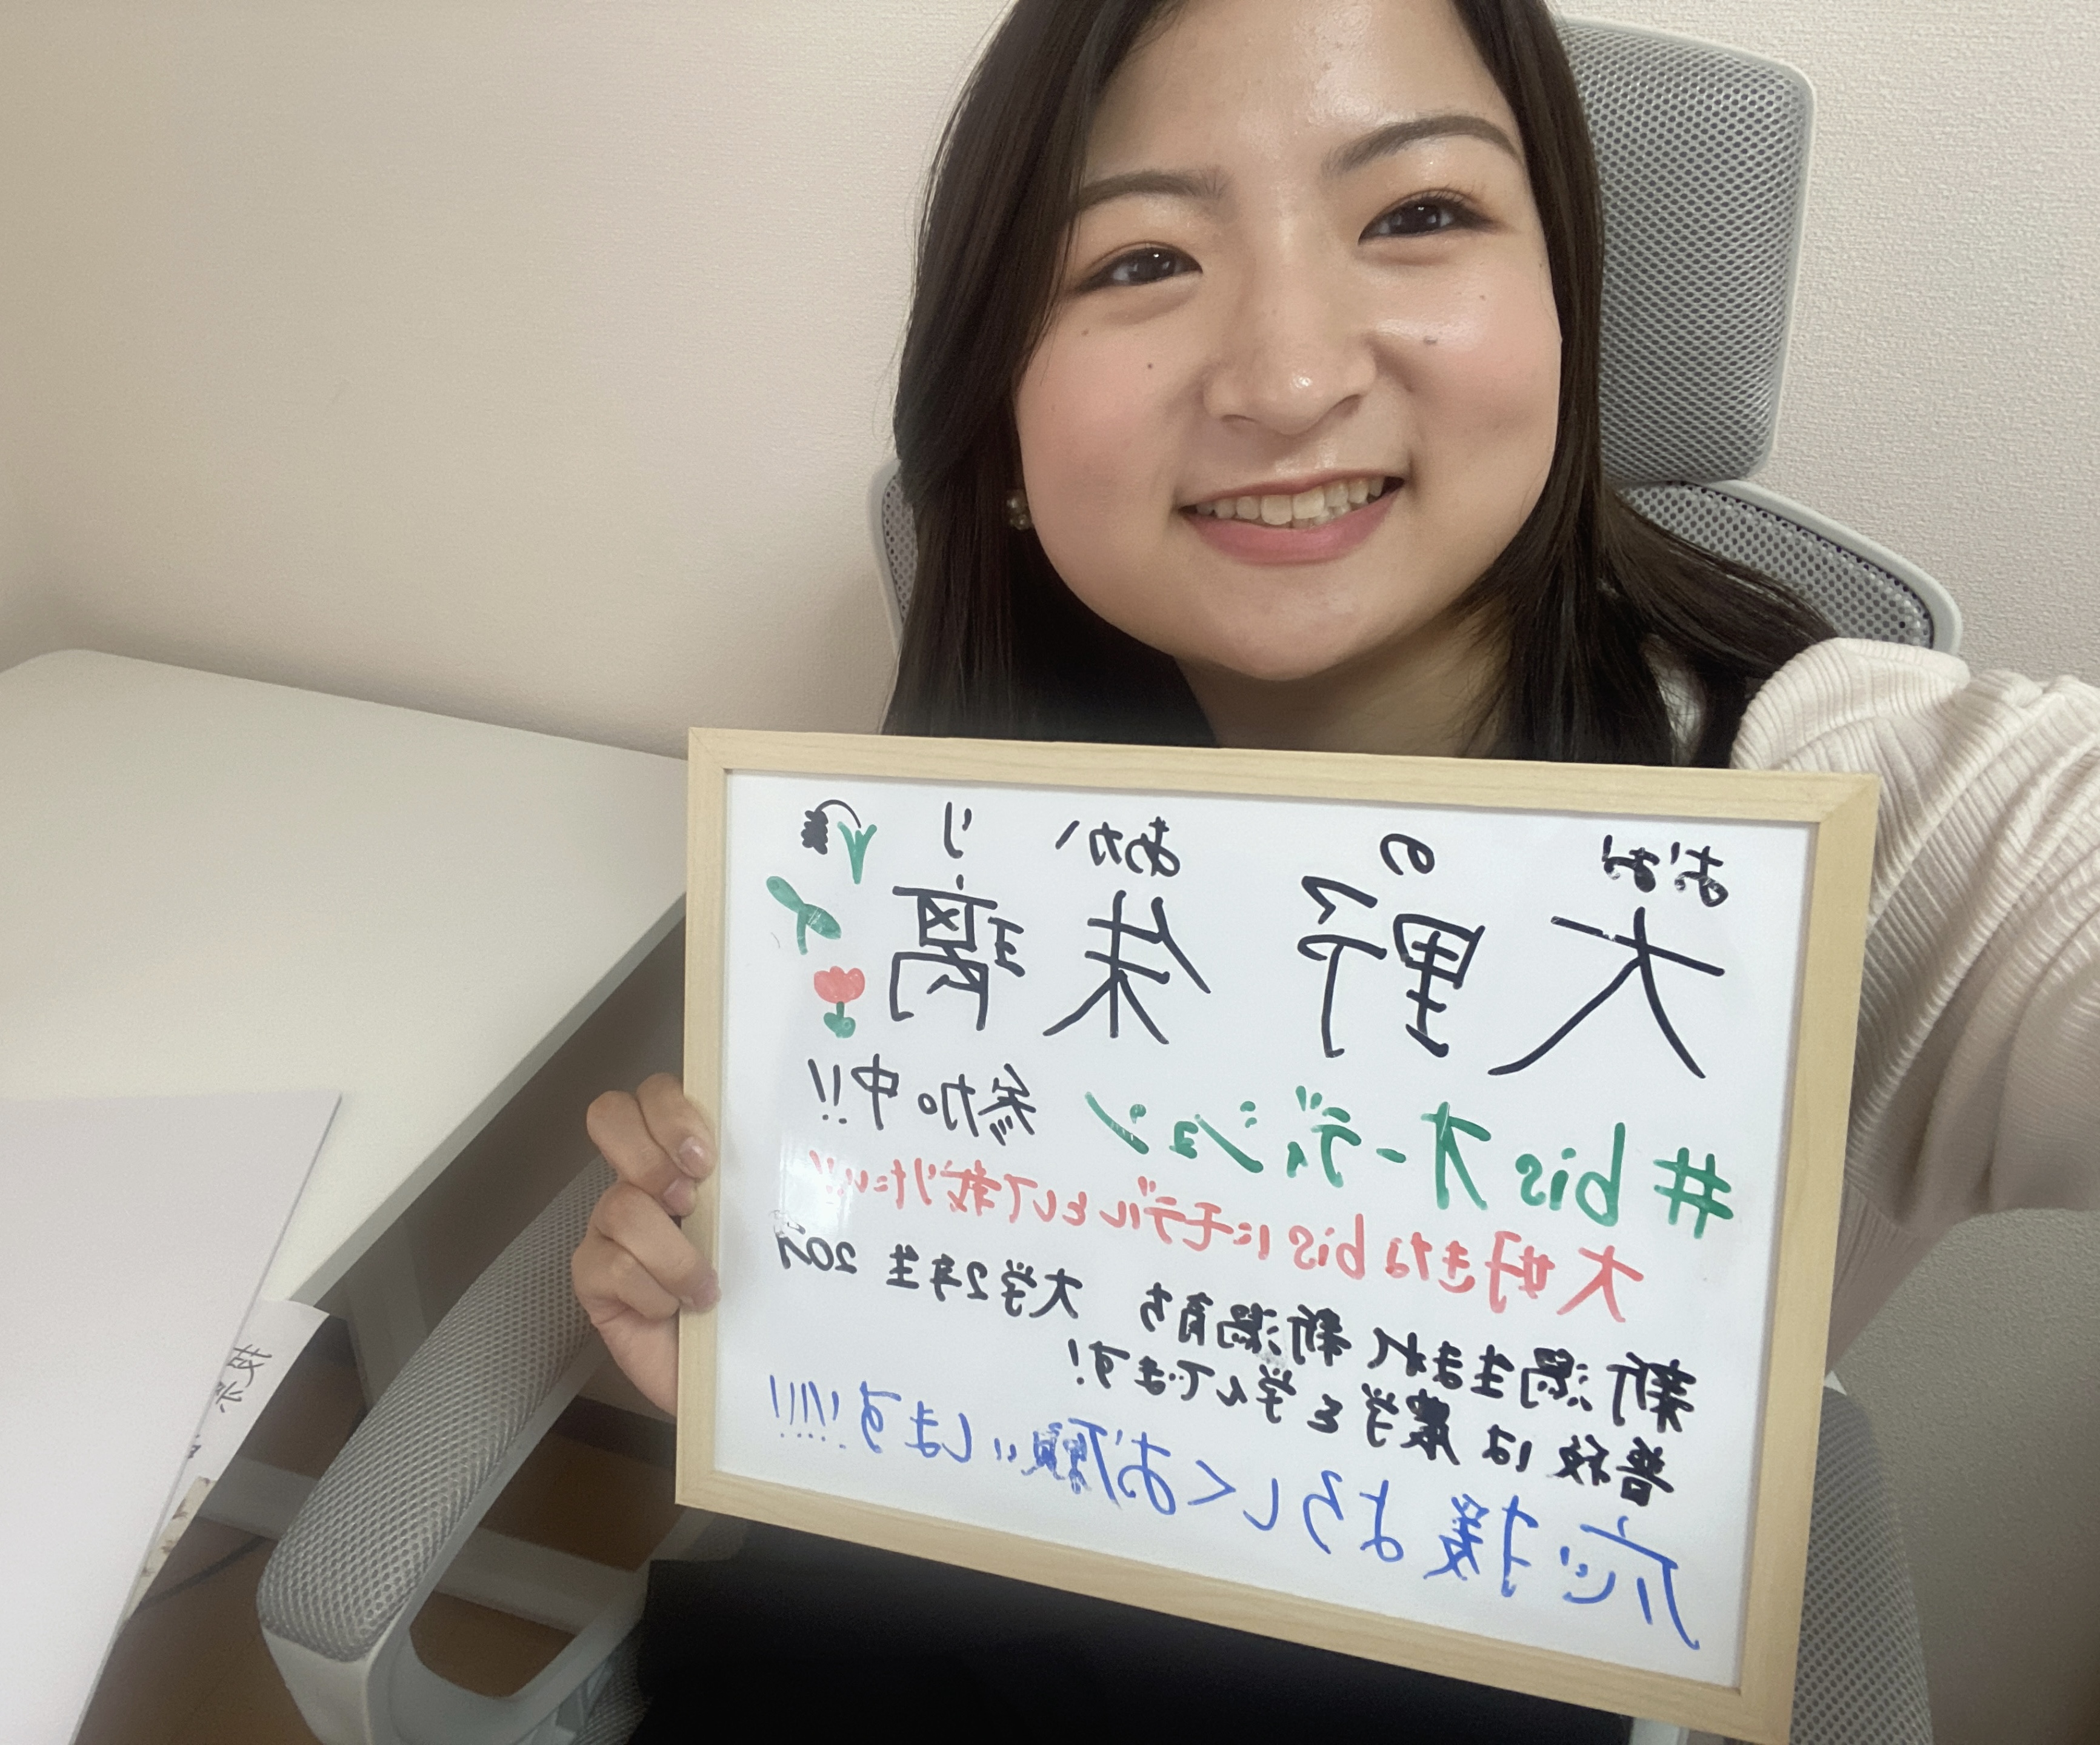 おお の あか り
大野 朱璃
#bisオーディション 参加中!!
大好きなbisにモデルとして載りたい!!
新潟生まれ 新潟育ち 大学2年生 20才
普段は農学を学んでます!
応援よろしくお願いします!!!!!